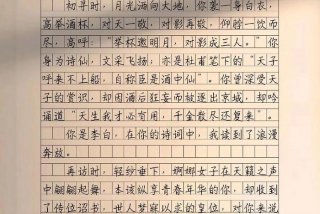 初寻时，月光洒向大地，你袭一身白衣，
高举酒杯，对天一敬，对影再敬，仰脖一饮而
尽，高呼：“举杯邀明月，对影成三人。”你
身为诗仙，文采飞扬，亦是杜甫笔下的“天子
呼来不上船，自称臣是酒中仙”。你曾深受天
子的赏识，却因酒后狂妄而被逐出京城，却吟
诵道“天生我才必有用，千金散尽还复来”。
你是李白，在你的诗词中，我读到了浪漫
奔放。
再访时，轻纱垂下，婀娜女子在天籁之声
中翩翩起舞，本该纵享青春年华的你，却收到
了传位诏书，世人梦寐以求的皇位，对你来说